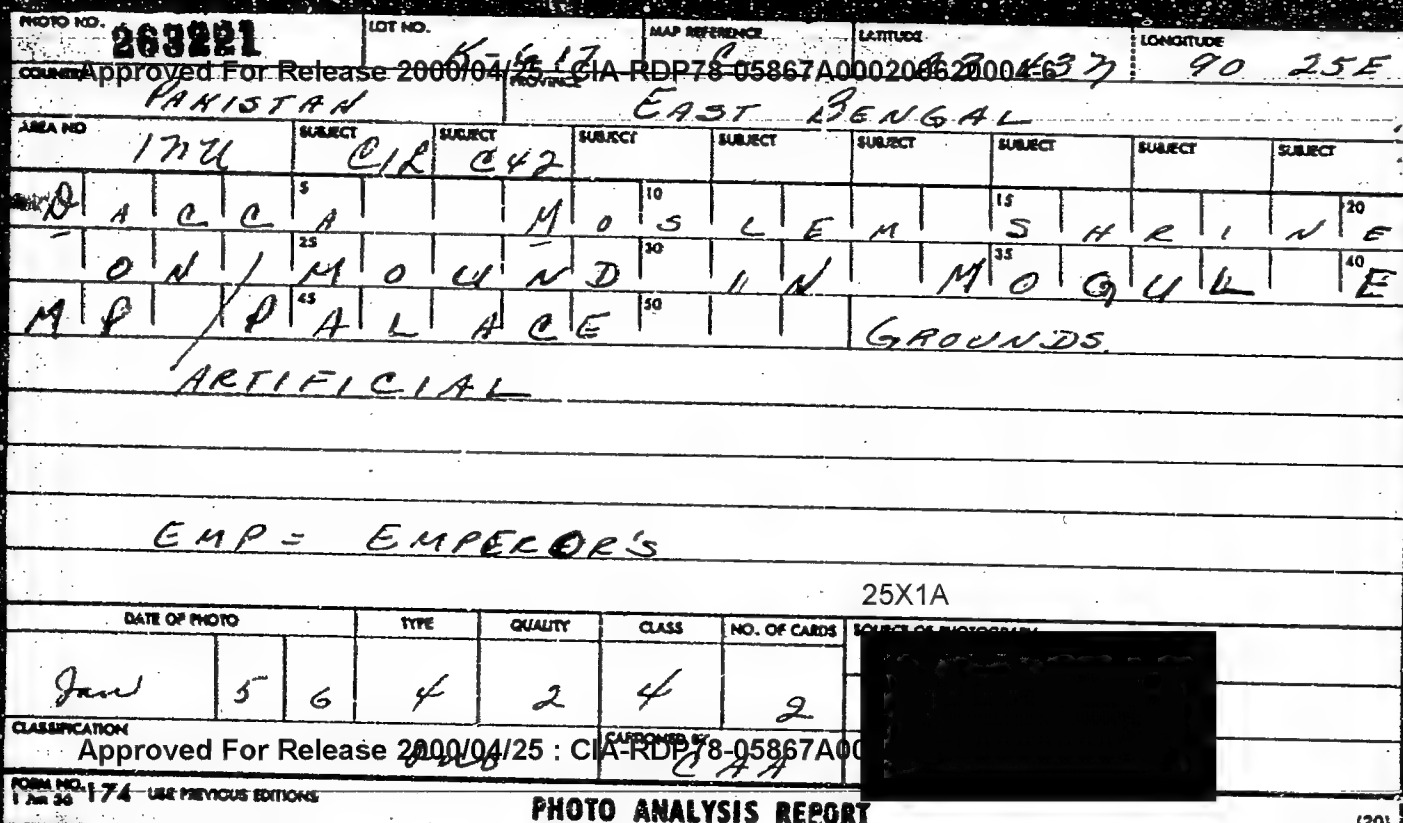 PHOTO NO. 263221 LOT NO. K-617 MAP REFERENCE C LATITUDE LONGITUDE 90 25E
Approved For Release 2000/04/25 : CIA-RDP78-05867A000200620004-6
COUNTRY PAKISTAN PROVINCE EAST BENGAL
AREA NO SUBJECT SUBJECT C42 SUBJECT SUBJECT SUBJECT SUBJECT SUBJECT SUBJECT
DACCA MOSLEM SHRINE
5 10 15 20
ON / MOUND IN MOGUL E
25 30 35 40
MP PALACE GROUNDS.
45 50
ARTIFICIAL
EMP = EMPEROR'S
25X1A
DATE OF PHOTO TYPE QUALITY CLASS NO. OF CARDS SOURCE OF PHOTOGRAPH
Jan 5 6 4 2 4 2
CLASSIFICATION
Approved For Release 2000/04/25 : CIA-RDP78-05867A00
CAA
FORM NO. 174 USE PREVIOUS EDITIONS
1 Jun 56
PHOTO ANALYSIS REPORT
(20)